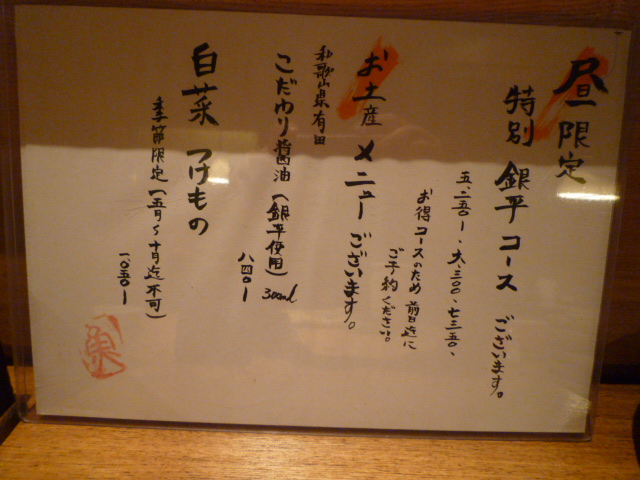 昼限定
特別 銀平コース ございます。
五、二五〇ー、六、三〇〇、七三五〇、
お得コースのため 前日迄に
ご予約ください。
お土産 メニューございます。
和歌山県有田
こだわり醤油(銀平使用) 300ml
八四〇ー
白菜 つけもの
季節限定(五月〜十月迄不可)
一〇五〇ー